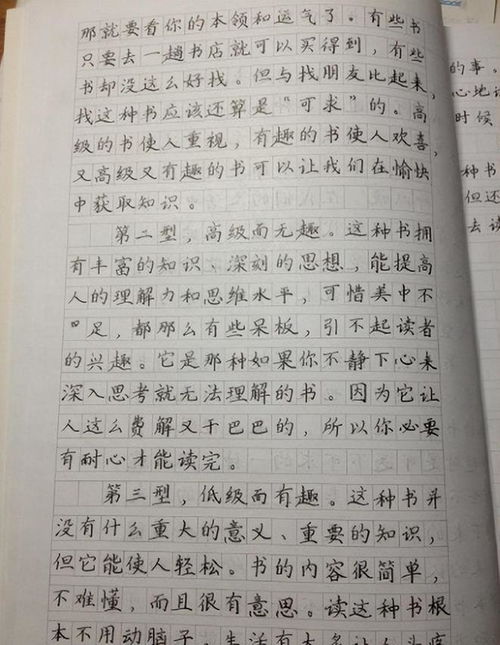 那就要看你的本领和运气了。有些书
只要去一趟书店就可以买得到，有些
书却没这么好找。但与找朋友比起来，
找这种书应该还算是“可求”的。高
级的书使人重视，有趣的书使人欢喜，
又高级又有趣的书可以让我们在愉快
中获取知识。
第二型，高级而无趣。这种书拥
有丰富的知识、深刻的思想，能提高
人的理解力和思维水平，可惜美中不
足，都那么有些呆板，引不起读者
的兴趣。它是那种如果你不静下心来
深入思考就无法理解的书。因为它让
人这么费解又干巴巴的，所以你必要
有耐心才能读完。
第三型，低级而有趣。这种书并
没有什么重大的意义、重要的知识，
但它能使人轻松。书的内容很简单，
不难懂，而且很有意思。读这种书根
本不用动脑子。生活有太多让人头疼
的事，
心地
时候
种书
但还
去读